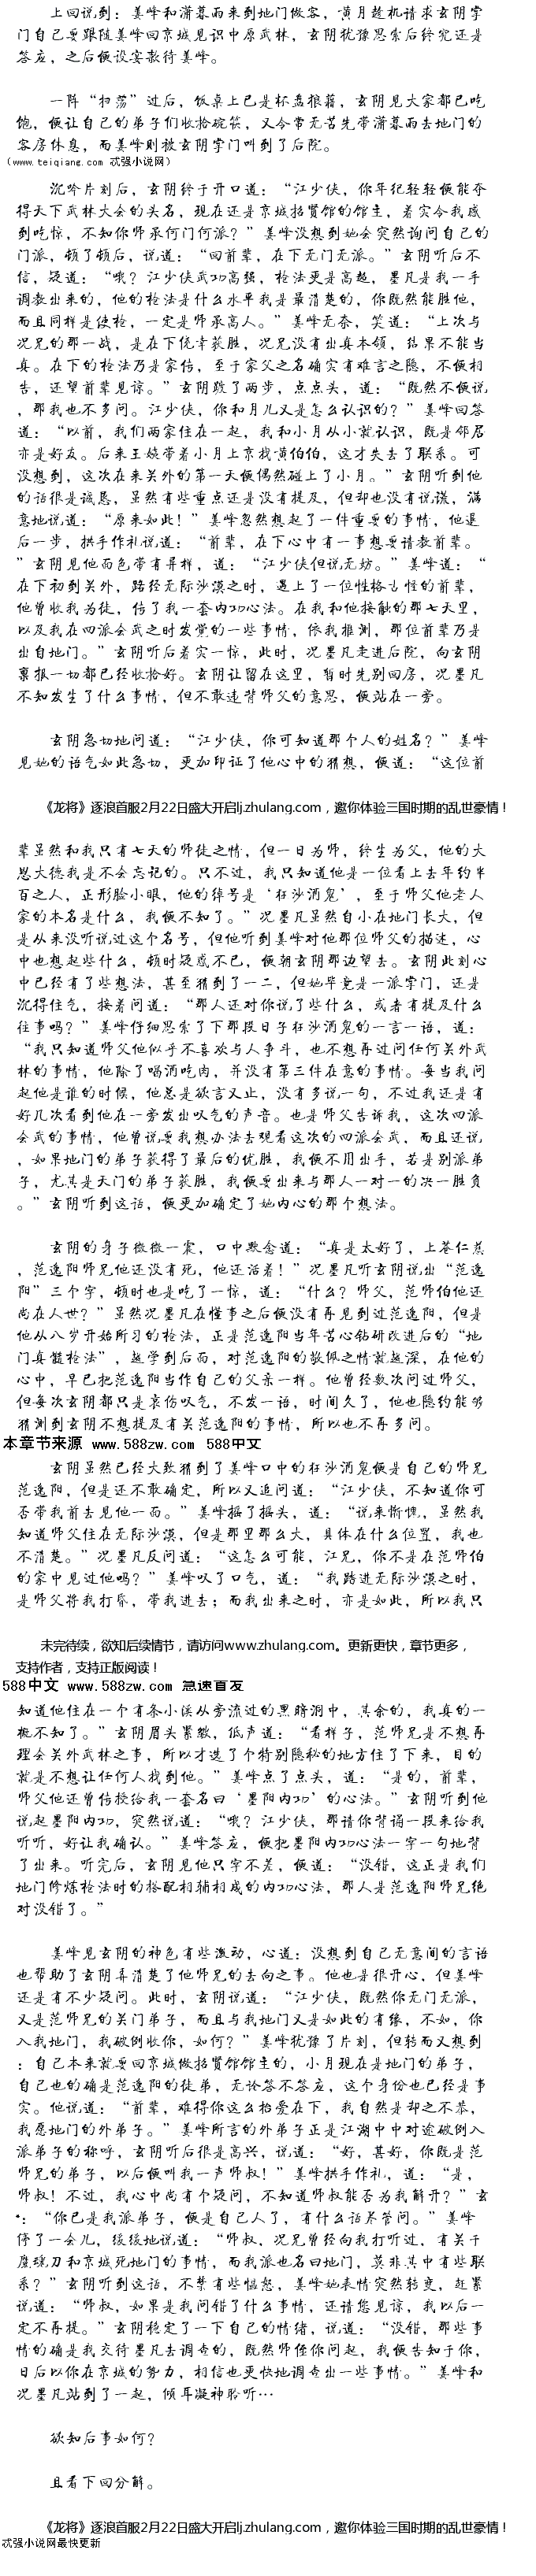 上回说到：姜峰和潇暮雨来到地门做客，黄月趁机请求玄阴掌
门自己要跟随姜峰回京城见识中原武林，玄阴犹豫思索后终究还是
答应，之后便设宴款待姜峰。
一阵“扫荡”过后，饭桌上已是杯盘狼藉，玄阴见大家都已吃
饱，便让自己的弟子们收拾碗筷，又令常无苦先带潇暮雨去地门的
客房休息，而姜峰则被玄阴掌门叫到了后院。
（www.teiqiang.com 忒强小说网）
沉吟片刻后，玄阴终于开口道：“江少侠，你年纪轻轻便能夺
得天下武林大会的头名，现在还是京城招贤馆的馆主，着实令我感
到吃惊，不知你师承何门何派？”姜峰没想到她会突然询问自己的
门派，顿了顿后，说道：“回前辈，在下无门无派。”玄阴听后不
信，疑道：“哦？江少侠武功高强，枪法更是高超，墨凡是我一手
调教出来的，他的枪法是什么水平我是最清楚的，你既然能胜他，
而且同样是使枪，一定是师承高人。”姜峰无奈，笑道：“上次与
况兄的那一战，是在下侥幸获胜，况兄没有出真本领，结果不能当
真。在下的枪法乃是家传，至于家父之名确实有难言之隐，不便相
告，还望前辈见谅。”玄阴踱了两步，点点头，道：“既然不便说
，那我也不多问。江少侠，你和月儿又是怎么认识的？”姜峰回答
道：“以前，我们两家住在一起，我和小月从小就认识，既是邻居
亦是好友。后来王娘带着小月上京找黄伯伯，这才失去了联系。可
没想到，这次在来关外的第一天便偶然碰上了小月。”玄阴听到他
的话很是诚恳，虽然有些重点还是没有提及，但却也没有说谎，满
意地说道：“原来如此！”姜峰忽然想起了一件重要的事情，他退
后一步，拱手作礼说道：“前辈，在下心中有一事想要请教前辈。
”玄阴见他面色带有异样，道：“江少侠但说无妨。”姜峰道：“
在下初到关外，路经无际沙漠之时，遇上了一位性格古怪的前辈，
他曾收我为徒，传了我一套内功心法。在我和他接触的那七天里，
以及我在四派会武之时发觉的一些事情，依我推测，那位前辈乃是
出自地门。”玄阴听后着实一惊，此时，况墨凡走进后院，向玄阴
禀报一切都已经收拾好。玄阴让留在这里，暂时先别回房，况墨凡
不知发生了什么事情，但不敢违背师父的意思，便站在一旁。
玄阴急切地问道：“江少侠，你可知道那个人的姓名？”姜峰
见她的语气如此急切，更加印证了他心中的猜想，便道：“这位前
《龙将》逐浪首服2月22日盛大开启lj.zhulang.com，邀你体验三国时期的乱世豪情！
辈虽然和我只有七天的师徒之情，但一日为师，终生为父，他的大
恩大德我是不会忘记的。只不过，我只知道他是一位看上去年约半
百之人，正形脸小眼，他的绰号是‘狂沙酒鬼’，至于师父他老人
家的本名是什么，我便不知了。”况墨凡虽然自小在地门长大，但
是从来没听说过这个名号，但他听到姜峰对他那位师父的描述，心
中也想起些什么，顿时疑惑不已，便朝玄阴那边望去。玄阴此刻心
中已经有了些想法，甚至猜到了一二，但她毕竟是一派掌门，还是
沉得住气，接着问道：“那人还对你说了些什么，或者有提及什么
往事吗？”姜峰仔细思索了下那段日子狂沙酒鬼的一言一语，道：
“我只知道师父他似乎不喜欢与人争斗，也不想再过问任何关外武
林的事情，他除了喝酒吃肉，并没有第三件在意的事情。每当我问
起他是谁的时候，他总是欲言又止，没有多说一句，不过我还是有
好几次看到他在一旁发出叹气的声音。也是师父告诉我，这次四派
会武的事情，他曾说要我想办法去观看这次的四派会武，而且还说
，如果地门的弟子获得了最后的优胜，我便不用出手，若是别派弟
子，尤其是天门的弟子获胜，我便要出来与那人一对一的决一胜负
。”玄阴听到这话，便更加确定了她内心的那个想法。
玄阴的身子微微一震，口中默念道：“真是太好了，上苍仁慈
，范逸阳师兄他还没有死，他还活着！”况墨凡听玄阴说出“范逸
阳”三个字，顿时也是吃了一惊，道：“什么？师父，范师伯他还
尚在人世？”虽然况墨凡在懂事之后便没有再见到过范逸阳，但是
他从八岁开始所习的枪法，正是范逸阳当年苦心钻研改进后的“地
门真髓枪法”，越学到后面，对范逸阳的敬佩之情就越深，在他的
心中，早已把范逸阳当作自己的父亲一样。他曾经数次问过师父，
但每次玄阴都只是哀伤叹气，不发一语，时间久了，他也隐约能够
猜测到玄阴不想提及有关范逸阳的事情，所以也不再多问。
本章节来源 www.588zw.com 588中文
玄阴虽然已经大致猜到了姜峰口中的狂沙酒鬼便是自己的师兄
范逸阳，但是还不敢确定，所以又追问道：“江少侠，不知道你可
否带我前去见他一面。”姜峰摇了摇头，道：“说来惭愧，虽然我
知道师父住在无际沙漠，但是那里那么大，具体在什么位置，我也
不清楚。”况墨凡反问道：“这怎么可能，江兄，你不是在范师伯
的家中见过他吗？”姜峰叹了口气，道：“我踏进无际沙漠之时，
是师父将我打昏，带我进去；而我出来之时，亦是如此，所以我只
未完待续，欲知后续情节，请访问www.zhulang.com。更新更快，章节更多，
支持作者，支持正版阅读！
588中文 www.588zw.com 急速首发
知道他住在一个有条小溪从旁流过的黑暗洞中，其余的，我真的一
概不知了。”玄阴眉头紧皱，低声道：“看样子，范师兄是不想再
理会关外武林之事，所以才选了个特别隐秘的地方住了下来，目的
就是不想让任何人找到他。”姜峰点了点头，道：“是的，前辈，
师父他还曾传授给我一套名曰‘墨阳内功’的心法。”玄阴听到他
说起墨阳内功，突然说道：“哦？江少侠，那请你背诵一段来给我
听听，好让我确认。”姜峰答应，便把墨阳内功心法一字一句地背
了出来。听完后，玄阴见他只字不差，便道：“没错，这正是我们
地门修炼枪法时的搭配相辅相成的内功心法，那人是范逸阳师兄绝
对没错了。”
姜峰见玄阴的神色有些激动，心道：没想到自己无意间的言语
也帮助了玄阴弄清楚了他师兄的去向之事。他也是很开心，但姜峰
还是有不少疑问。此时，玄阴说道：“江少侠，既然你无门无派，
又是范师兄的关门弟子，而且与我地门又是如此的有缘，不如，你
入我地门，我破例收你，如何？”姜峰犹豫了片刻，但转而又想到
：自己本来就要回京城做招贤馆馆主的，小月现在是地门的弟子，
自己也的确是范逸阳的徒弟，无论答不答应，这个身份也已经是事
实。他说道：“前辈，难得你这么抬爱在下，我自然是却之不恭，
我愿地门的外弟子。”姜峰所言的外弟子正是江湖中中对途破例入
派弟子的称呼，玄阴听后很是高兴，说道：“好，甚好，你既是范
师兄的弟子，以后便叫我一声师叔！”姜峰拱手作礼，道：“是，
师叔！不过，我心中尚有个疑问，不知道师叔能否为我解开？”玄
*：“你已是我派弟子，便是自己人了，有什么话尽管问。”姜峰
停了一会儿，缓缓地说道：“师叔，况兄曾经向我打听过，有关于
魔魂刀和京城死地门的事情，而我派也名曰地门，莫非其中有些联
系？”玄阴听到这话，不禁有些恼怒，姜峰她表情突然转变，赶紧
说道：“师叔，如果是我问错了什么事情，还请您见谅，我以后一
定不再提。”玄阴稳定了一下自己的情绪，说道：“没错，那些事
情的确是我交待墨凡去调查的，既然师侄你问起，我便告知于你，
日后以你在京城的努力，相信也更快地调查出一些事情。”姜峰和
况墨凡站到了一起，倾耳凝神聆听…
欲知后事如何？
且看下回分解。
《龙将》逐浪首服2月22日盛大开启lj.zhulang.com，邀你体验三国时期的乱世豪情！
忒强小说网最快更新